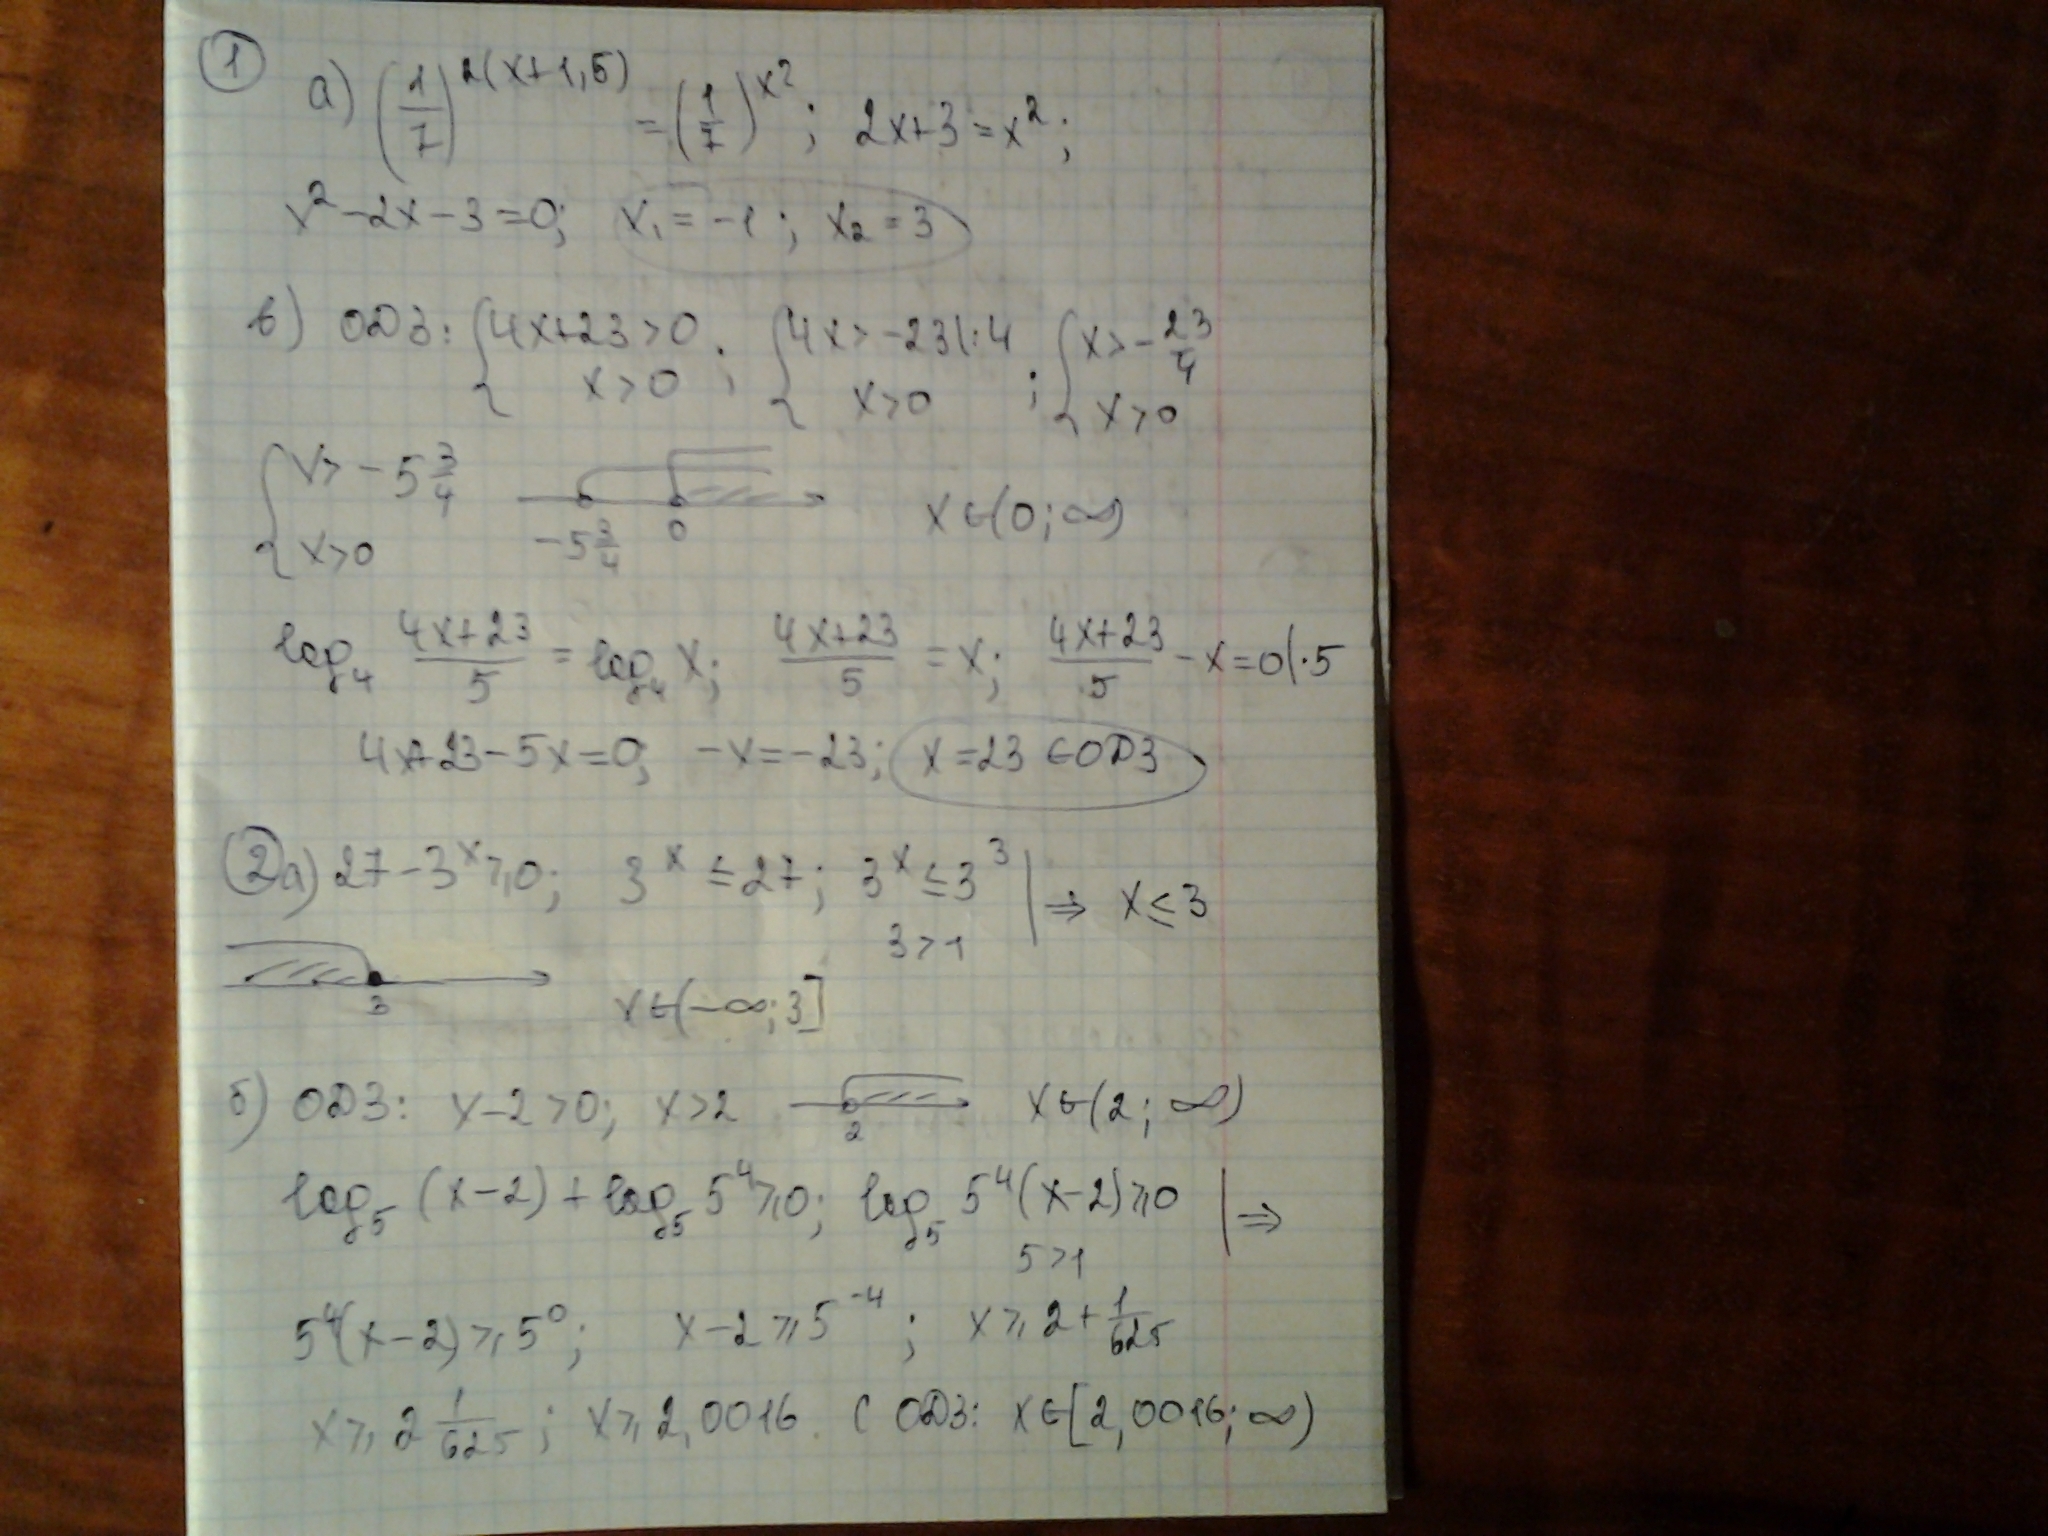 1 а) (1/7)^2(x+1,5) = (1/7)^x²; 2x+3=x²;
x²-2x-3=0; x₁=-1; x₂=3
в) ОДЗ: {4x+23>0 x>0; {4x>-23|:4 x>0; {x>-23/4 x>0
{x>-5 3/4 x>0 -5 3/4 0 x∈(0;∞)
log₄ (4x+23)/5 = log₄ x; (4x+23)/5 = x; (4x+23)/5 - x=0|·5
4x+23-5x=0; -x=-23; x=23 ∈ОДЗ
2 а) 27-3^x≥0; 3^x≤27; 3^x≤3³ 3>1 | ⇒ x≤3
3 x∈(-∞;3]
б) ОДЗ: x-2>0; x>2 2 x∈(2;∞)
log₅ (x-2)+log₅ 5⁴≥0; log₅ 5⁴(x-2)≥0 | ⇒
5>1
5⁴(x-2)≥5⁰; x-2≥5⁻⁴; x≥2+1/625
x≥2 1/625; x≥2,0016. С ОДЗ: x∈[2,0016;∞)